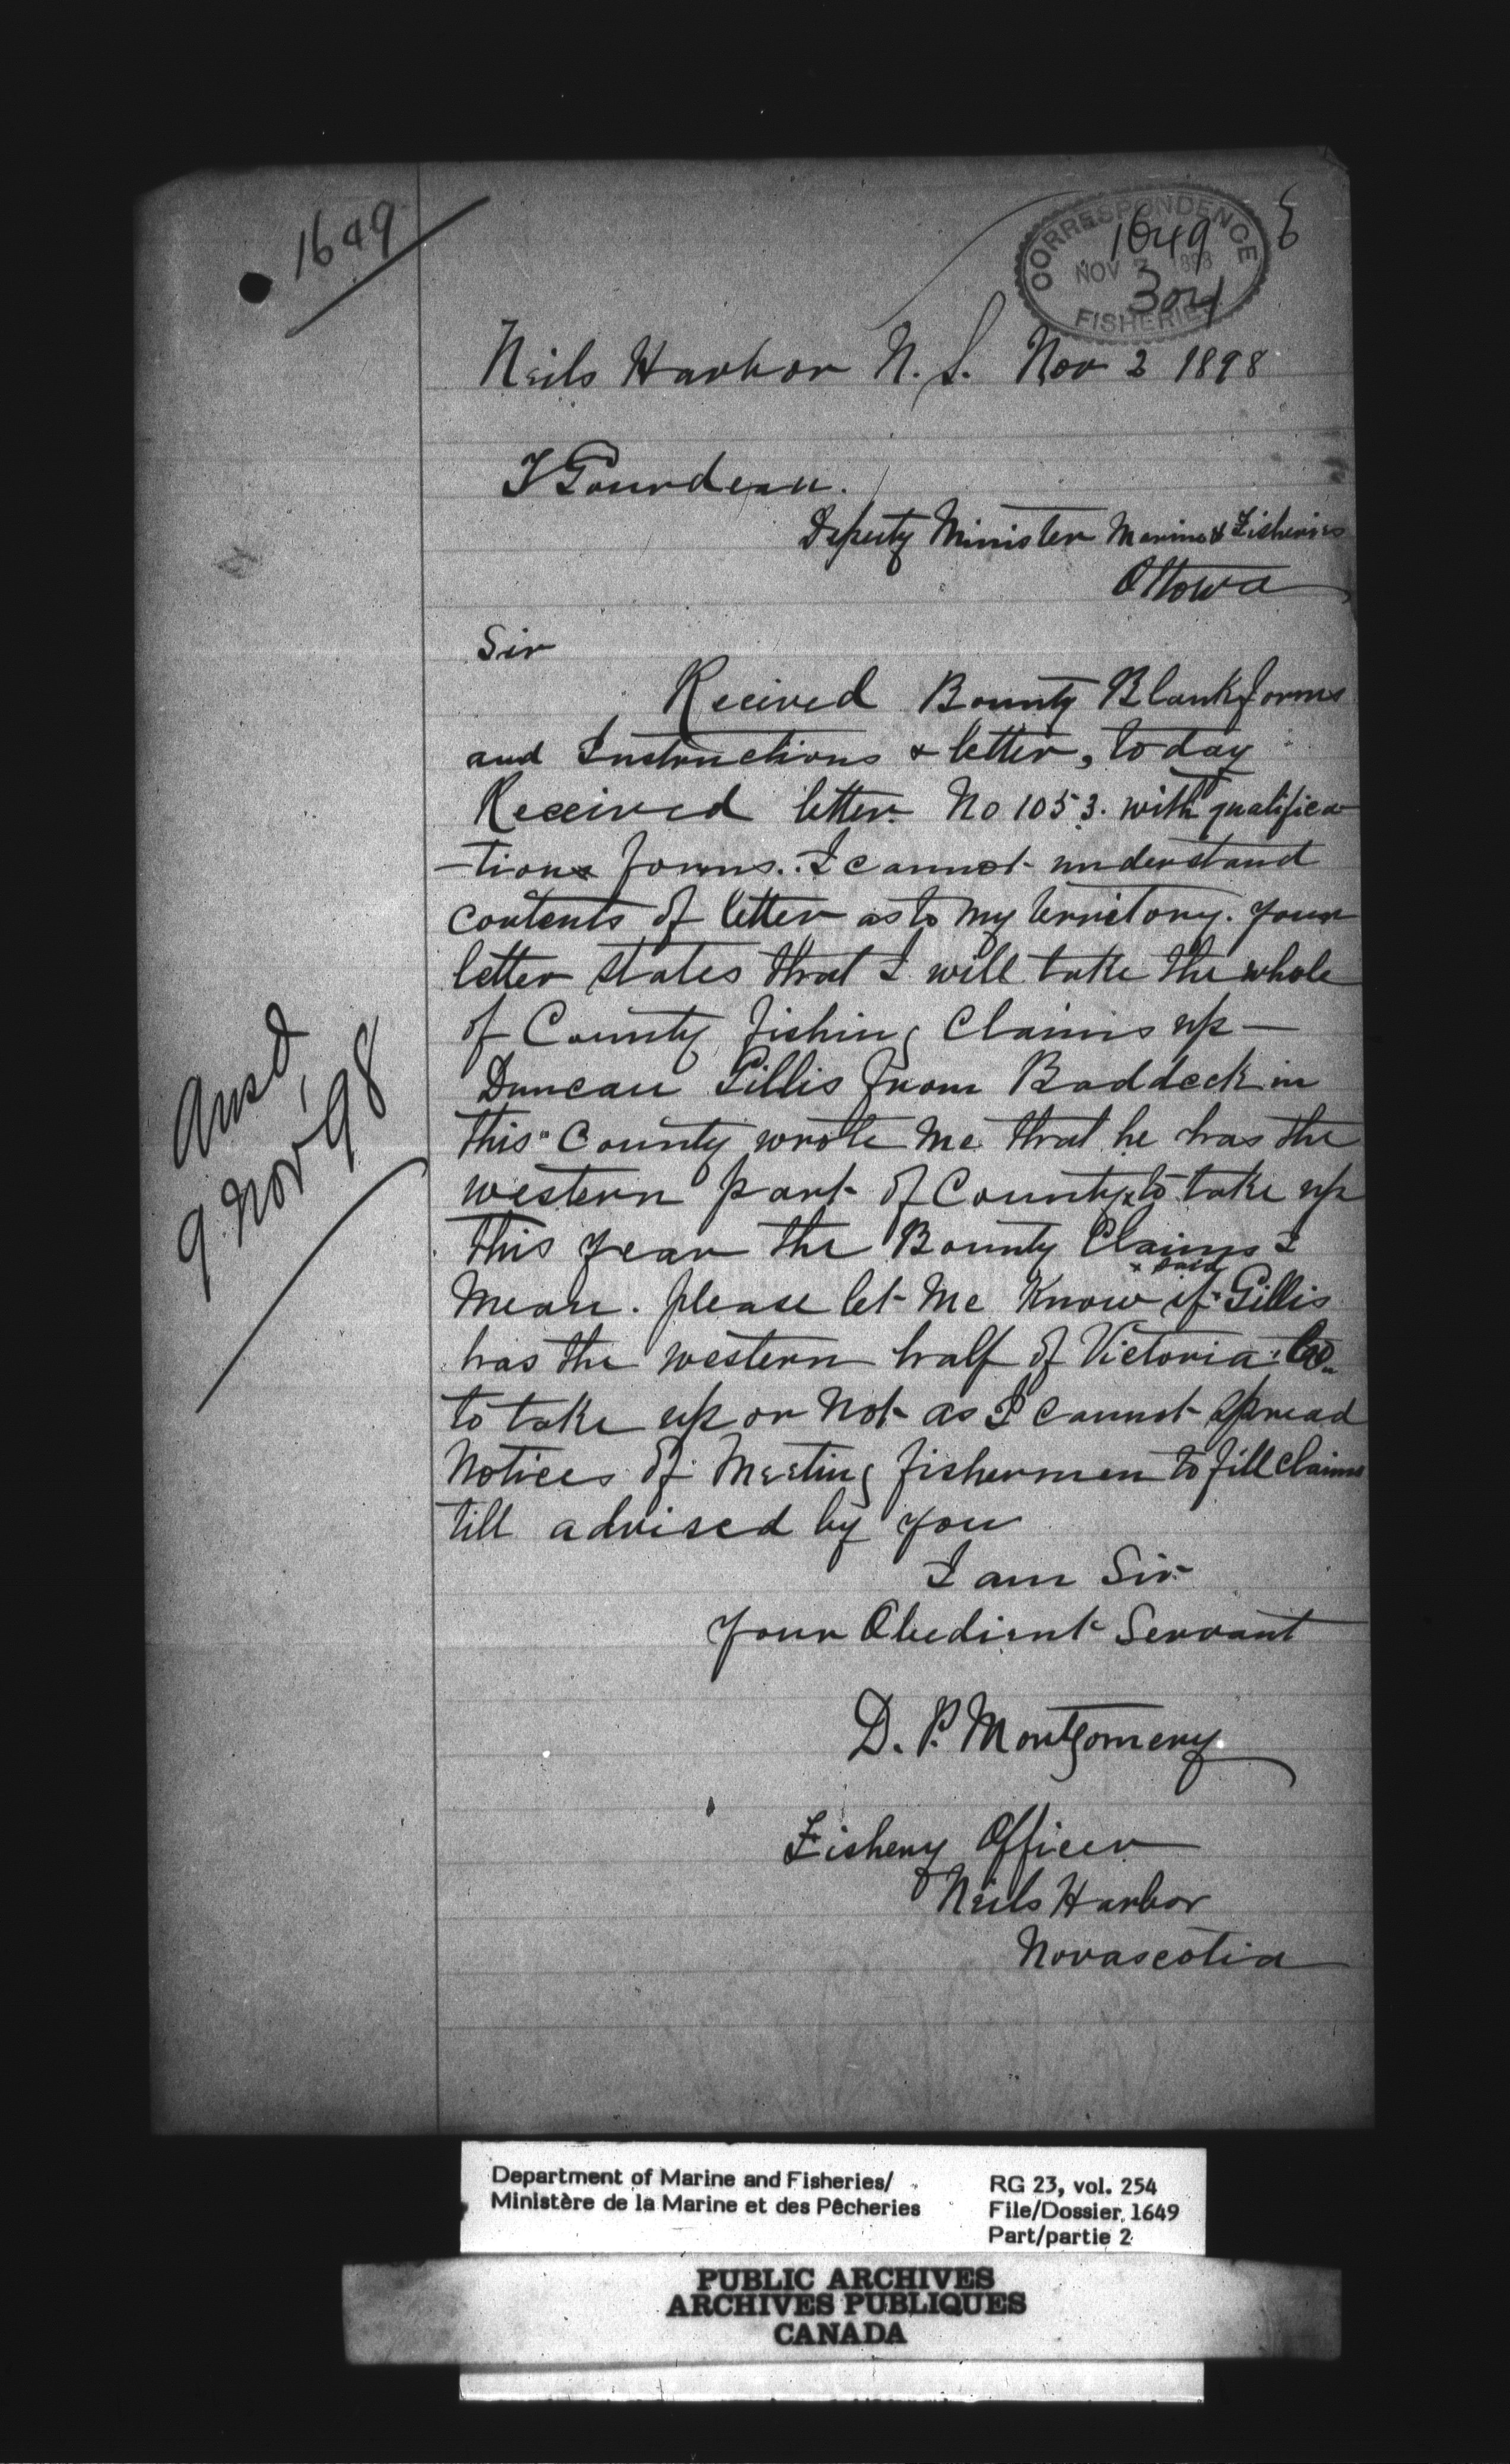 1649
CORRESPONDENCE
1649
NOV 7 1898
304
FISHERIES
Neils Harbor N.S. Nov 2 1898
F Gourdeau.
Deputy Minister Marine & Fisheries
Ottowa
Sir
Recived Bounty Blank forms
and Instructions & letter, to day
Received letter No 1053. with qualifica
-tion forms. I cannot understand
contents of letter as to my territory. your
letter states that I will take the whole
of County fishing Claims up —
Duncan Gillis from Baddeck in
this County wrote me that he has the
western part of County to take up
this year the Bounty Claims I
mean. please let me know if said Gillis
has the western half of Victoria Co.
to take up or not as I cannot spread
notices of meeting fishermen to fill claims
till advised by you
I am Sir
your Obedient Servant
D. P. Montgomery.
Fishery Officer
Neils Harbor
Novascotia
Ansd,
9 Nov 98
Department of Marine and Fisheries/
Ministère de la Marine et des Pêcheries
RG 23, vol. 254
File/Dossier 1649
Part/partie 2
PUBLIC ARCHIVES
ARCHIVES PUBLIQUES
CANADA